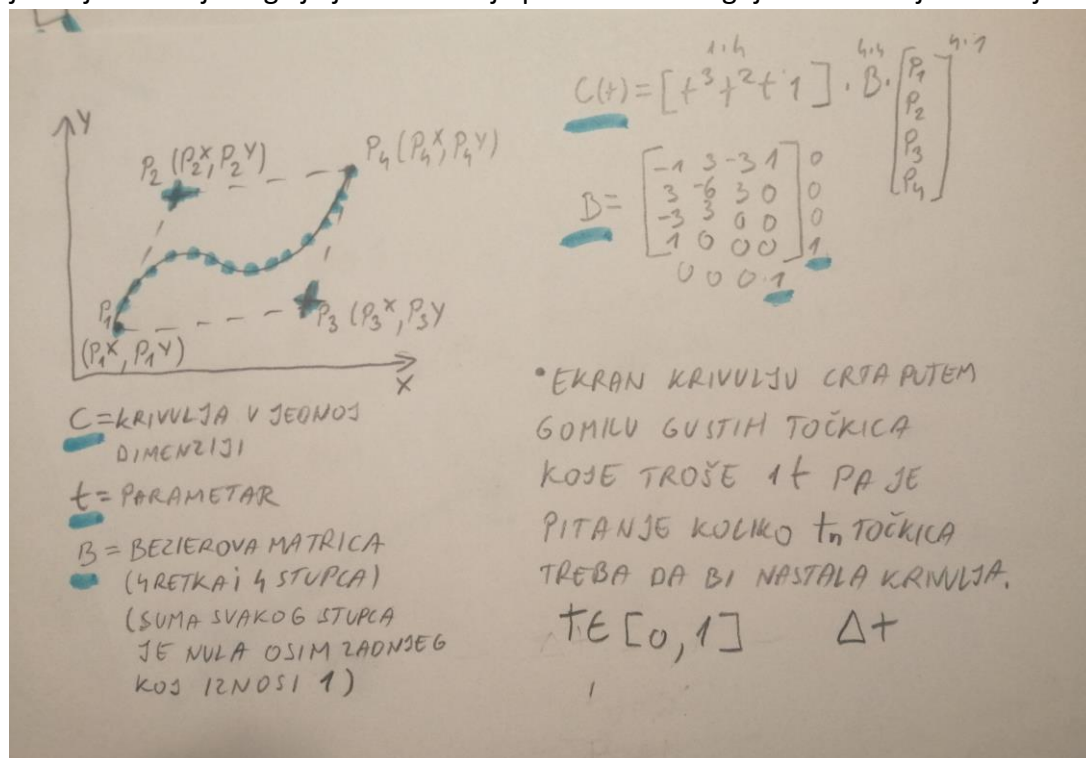 P₂ (P₂ˣ, P₂ʸ)
P₄ (P₄ˣ, P₄ʸ)
P₁
(P₁ˣ, P₁ʸ)
P₃ (P₃ˣ, P₃ʸ
Y
X
C = KRIVULJA U JEDNOJ
DIMENZIJI
t = PARAMETAR
B = BEZIEROVA MATRICA
(4 RETKA i 4 STUPCA)
(SUMA SVAKOG STUPCA
JE NULA OSIM ZADNJEG
KOJ IZNOSI 1)
1·4 4·4 4·1
C(t) = [t³ t² t 1] · B · [P₁
P₂
P₃
P₄]
B = [-1 3 -3 1] 0
3 -6 3 0 0
-3 3 0 0 0
1 0 0 0 1
0 0 0 1
• EKRAN KRIVULJU CRTA PUTEM
GOMILU GUSTIH TOČKICA
KOJE TROŠE 1t PA JE
PITANJE KOLIKO tₙ TOČKICA
TREBA DA BI NASTALA KRIVULJA.
t∈[0,1] Δt